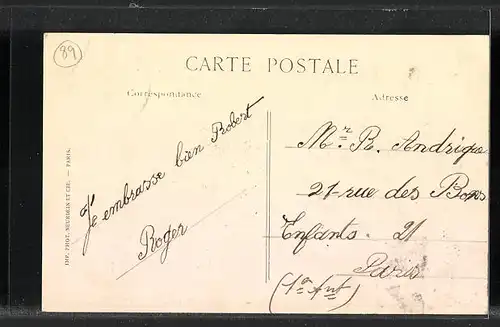 89
CARTE POSTALE
Correspondance
Adresse
Je embrasse bien Robert
Roger
Mr. R. Andrique
21 - rue des Bons
Enfants. 21
Paris
IMP. PHOT. NEURDEIN ET CIE. — PARIS.